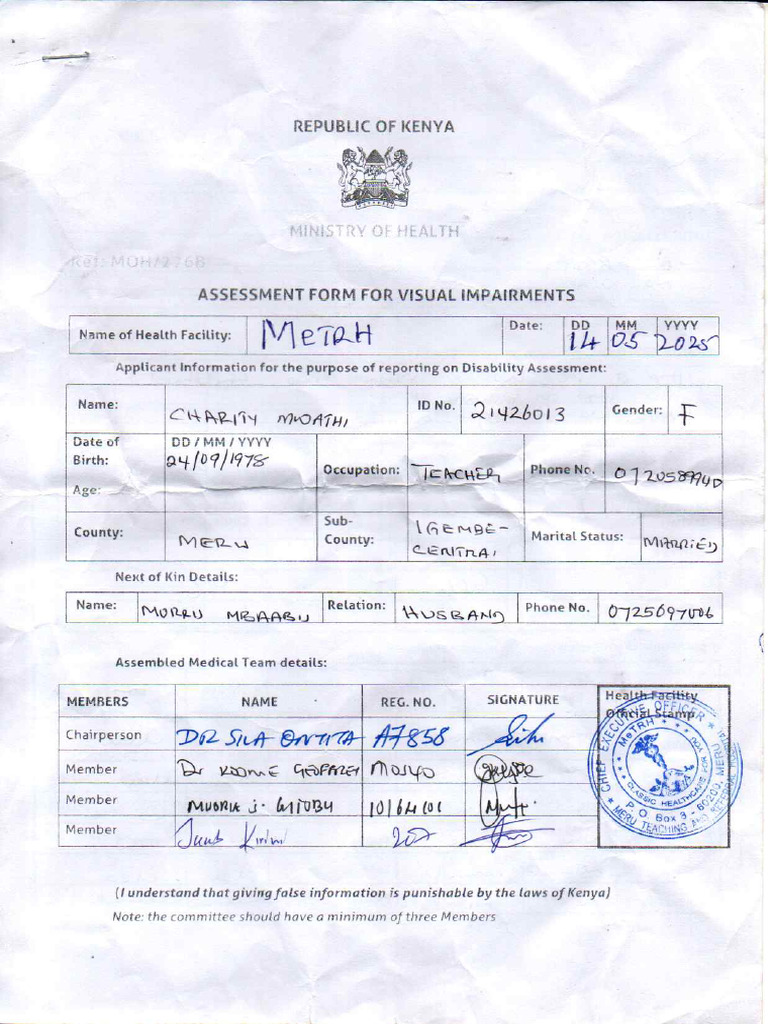 REPUBLIC OF KENYA
MINISTRY OF HEALTH
Ref: MOH/276B
ASSESSMENT FORM FOR VISUAL IMPAIRMENTS
Name of Health Facility: MeTRH Date: DD MM YYYY
14 05 2025
Applicant Information for the purpose of reporting on Disability Assessment:
Name: CHARITY MWATHI ID No. 21426013 Gender: F
Date of Birth: DD / MM / YYYY
24/09/1978
Age:
Occupation: TEACHER Phone No.
County: MERU Sub-County: IGEMBE-CENTRAL Marital Status: MARRIED
Next of Kin Details:
Name: MBAABU Relation: HUSBAND Phone No.
Assembled Medical Team details:
MEMBERS NAME REG. NO. SIGNATURE Health Facility
Official Stamp
Chairperson DR SILA ONTITA A7858
Member Dr
Member J.
Member
CHIEF EXECUTIVE OFFICER
MeTRH
CLASSIC HEALTHCARE FOR YOU
P. O. Box 8 - 60200, MERU
MERU TEACHING AND REFERRAL HOSPITAL
(I understand that giving false information is punishable by the laws of Kenya)
Note: the committee should have a minimum of three Members